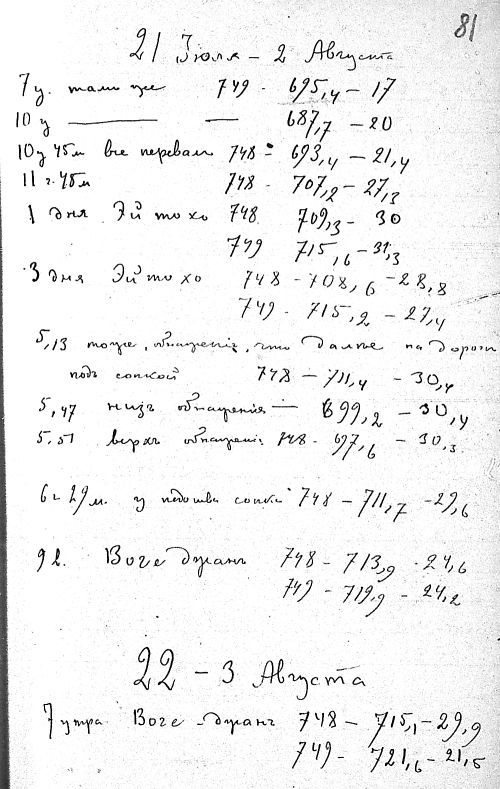 81
21 Июля - 2 Августа
7 у. тамъ же 749 - 695,4 - 17
10 у — — 687,7 - 20
10 у 45м все перевалъ 748 - 693,4 - 21,4
11 г. 45м 748 - 707,2 - 27,3
1 дня Эйтохо 748 709,3 - 30
749 715,6 - 31,3
3 дня Эйтохо 748 - 708,6 - 28,8
749 - 715,2 - 27,4
5,13 тоже, обнаженіе, что далѣе на дороги
подъ сопкой 748 - 711,4 - 30,4
5,47 низъ обнаженія — 699,2 - 30,4
5,51 верхъ обнажені: 748 - 697,6 - 30,3
6 г 29 м. у подошвы сопки 748 - 711,7 - 29,6
9 в. Воге джанъ 748 - 713,9 - 24,6
749 - 719,9 - 24,2
22 - 3 Августа
7 утра Воге-джанъ 748 - 715,1 - 29,9
749 - 721,6 - 21,5